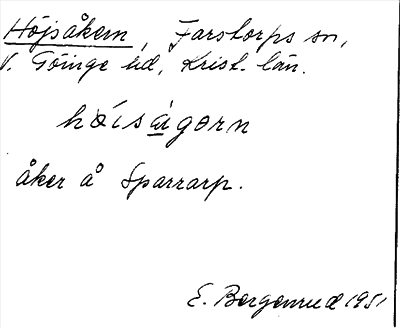 Höjsåkern, Farstorps sn,
V. Göinge hd, Krist. län.
høisågørn
åker å Sparrarp.
E. Bergenrud 1951